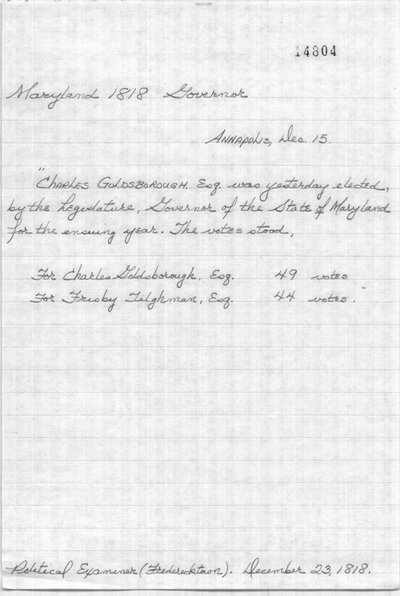 14804
Maryland 1818 Governor
ANNAPOLIS, Dec. 15.
"CHARLES GOLDSBOROUGH, Esq. was yesterday elected,
by the Legislature, Governor of the State of Maryland
for the ensuing year. The votes stood,
For Charles Goldsborough, Esq. 49 votes
For Frisby Tilghman, Esq. 44 votes."
Political Examiner (Fredericktown). December 23, 1818.